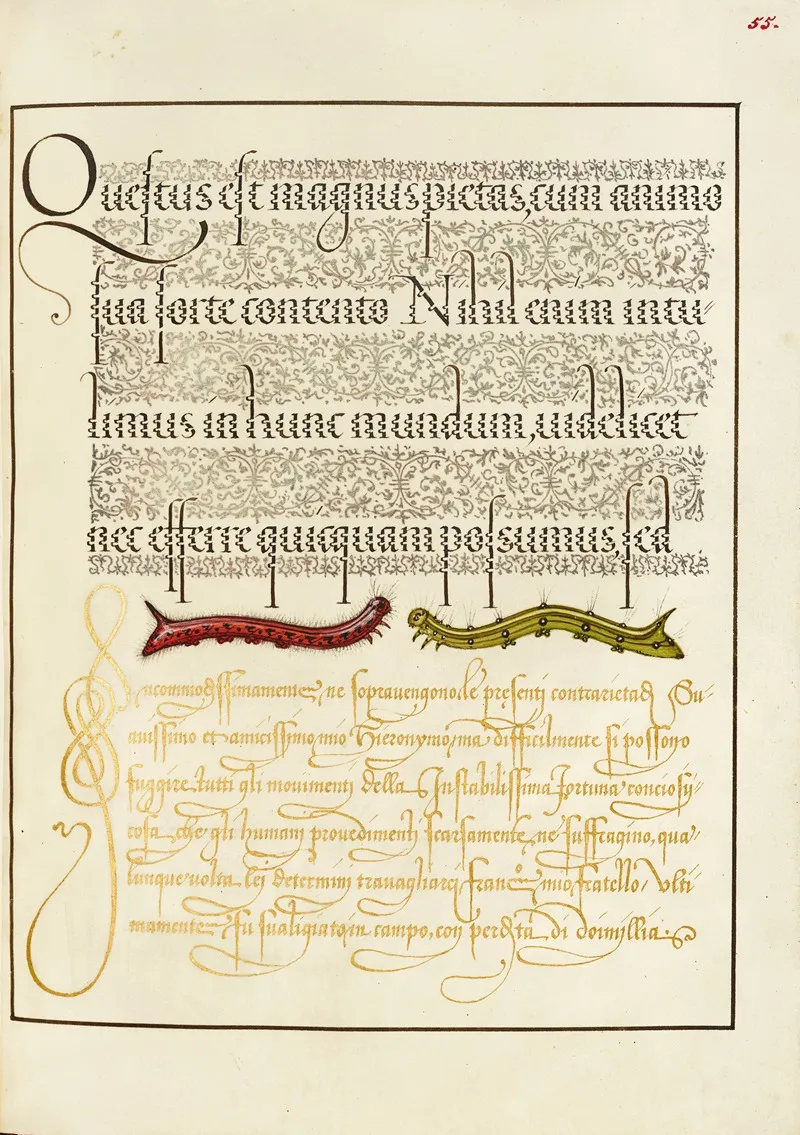 55.
Questus est magnus pietas, cum animo
sua sorte contento Nihil enim intu
limus in hunc mundum, uidelicet
nec efferre quicquam possumus, sed
Incommodissimamente, ne sopravengono le presenti contrarietadi Su
auissimo et amicissimo mio Hieronymo, ma difficilmente si possono
fuggire tutti gli mouimenti della Instabilissima fortuna concio sy
cosa che gli humani provedimenti scarsamente ne suffragino, qua
lunque uolta lei determini travagliarci, mio fratello, Ulti
mamente fu sualigiato in campo, con perdita di doimillia